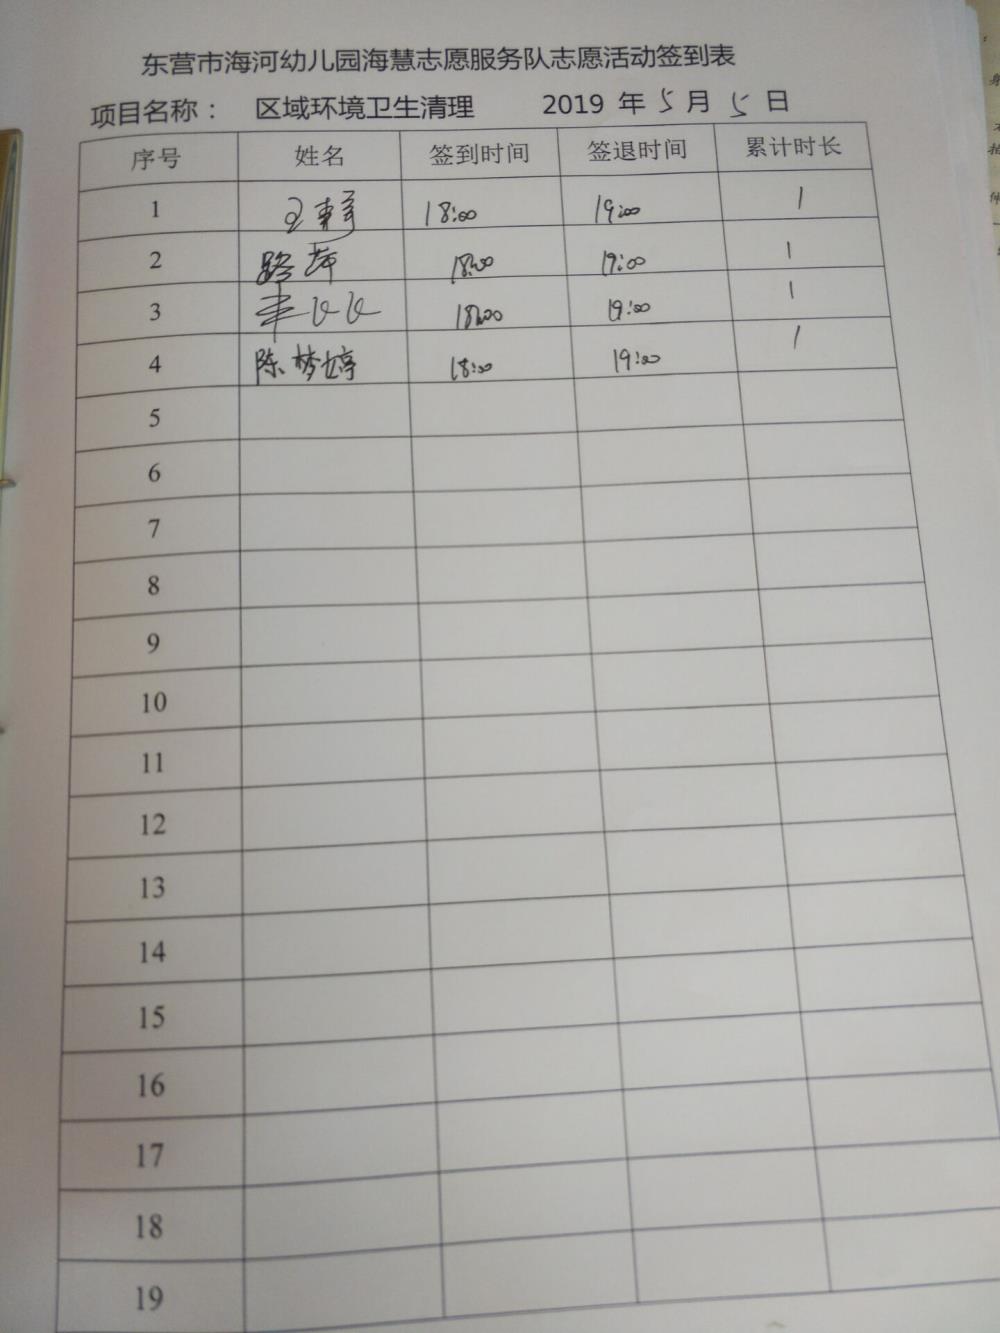 东营市海河幼儿园海慧志愿服务队志愿活动签到表
项目名称： 区域环境卫生清理 2019 年 5 月 5 日
序号 姓名 签到时间 签退时间 累计时长
1 18:00 19:00 1
2 路萍 18:00 19:00 1
3 18:00 19:00 1
4 陈梦婷 18:00 19:00 1
5
6
7
8
9
10
11
12
13
14
15
16
17
18
19